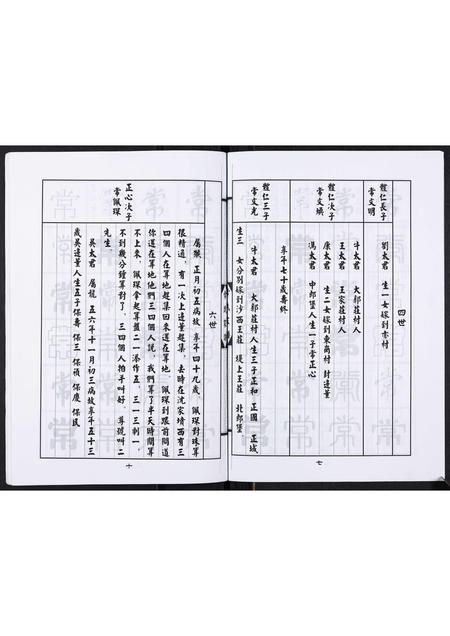 四世
體仁長子
常文明
劉太君 生一女嫁到赤村
體仁次子
常文煥
牛太君 大郝莊村人
王太君 王家莊村人
康太君 生二女嫁到東尚村 封進董
馮太君 中郎堡人生一子常正心
享年七十歲壽終
體仁三子
常文光
牛太君 大郝莊村人生三子正和 正國 正域
生三 女分別嫁到沙西王莊 堤上王莊 北郎堡
七
六世
正心次子
常佩琛
屬猴 正月初五病故 享年四十九歲 佩琛對珠算
很精通，有一次上進董趕集，去時在沈家墳西有三
四個人在算地趕集回來還在算地，佩琛到跟前問道
你還在算地他們三四個人說，我們算了半天時間算
不上來，佩琛拿起算盤二一添作五，三一三剩一，
不到幾分鐘算對了，三四個人拍手叫好，尊號叫二
先生
吳太君 屬龍 五六年十一月初三病故享年五十三
歲吳進董人生五子保壽 保三 保禎 保慶 保民
十